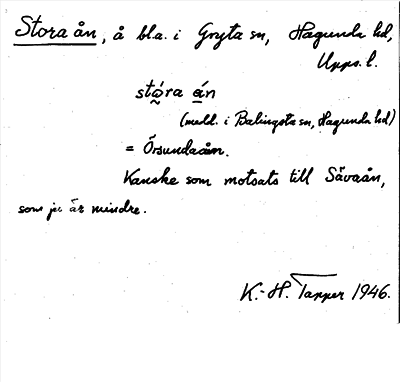 Stora ån, å bl.a. i Gryta sn, Hagunda hd,
Upps. l.
stóra án
(medd. i Balingsta sn, Hagunda hd)
= Örsundaån.
Kanske som motsats till Sävaån,
som ju är mindre.
K.-H. Tapper 1946.